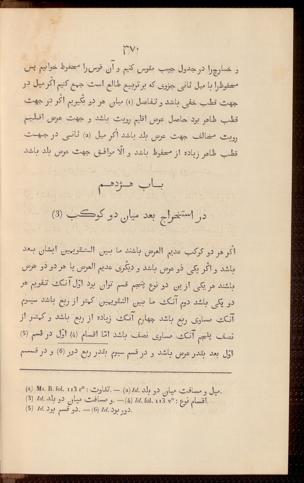 ٣٧٠
و خارج را در جدول جیب مقوس کنیم و آن قوس را محفوظ خوانیم پس
محفوظ را با میل ثانی جزوی که بر تربیع طالع است جمع کنیم اگر میل در
جهت قطب خفی باشد و تفاضل (۱) میان هر دو بگیریم اگر در جهت
قطب ظاهر بود حاصل عرض اقلیم رویت باشد و جهت عرض اقلیم
رویت مخالف جهت عرض بلد باشد اگر میل (۲) ثانی در جهت
قطب ظاهر زیاده از محفوظ باشد و الّا موافق جهت عرض بلد باشد
باب هژدهم
در استخراج بعد میان دو کوکب (3)
اگر هر دو کوکب عدیم العرض باشند ما بین التقویمین ایشان بعد
باشد و اگر یکی ذو عرض باشد و دیگری عدیم العرض یا هر دو ذو عرض
باشند هر یکی از این دو نوع پنجم قسم توان بود اوّل آنک تقویم هر
دو یکی باشد دوم آنک ما بین التقویمین کمتر از ربع باشد سیوم
آنک مساوی ربع باشد چهارم آنک زیاده از ربع باشد و کمتر از
نصف پنجم آنک مساوی نصف باشد امّا اقسام (4) اوّل در قسم (5)
اوّل بعد بقدر عرض باشد و در قسم سیوم بقدر ربع دور (6) و در قسم
(1) Ms. B. fol. 113 v° : تفاوت. — (2) Id. میل و مسافت میان دو بلد.
(3) Id. و مسافت میان دو بلد. — (4) Id. fol. 113 v° : اقسام نوع.
(5) Id. دو قسم بود. — (6) Id. دور بود.